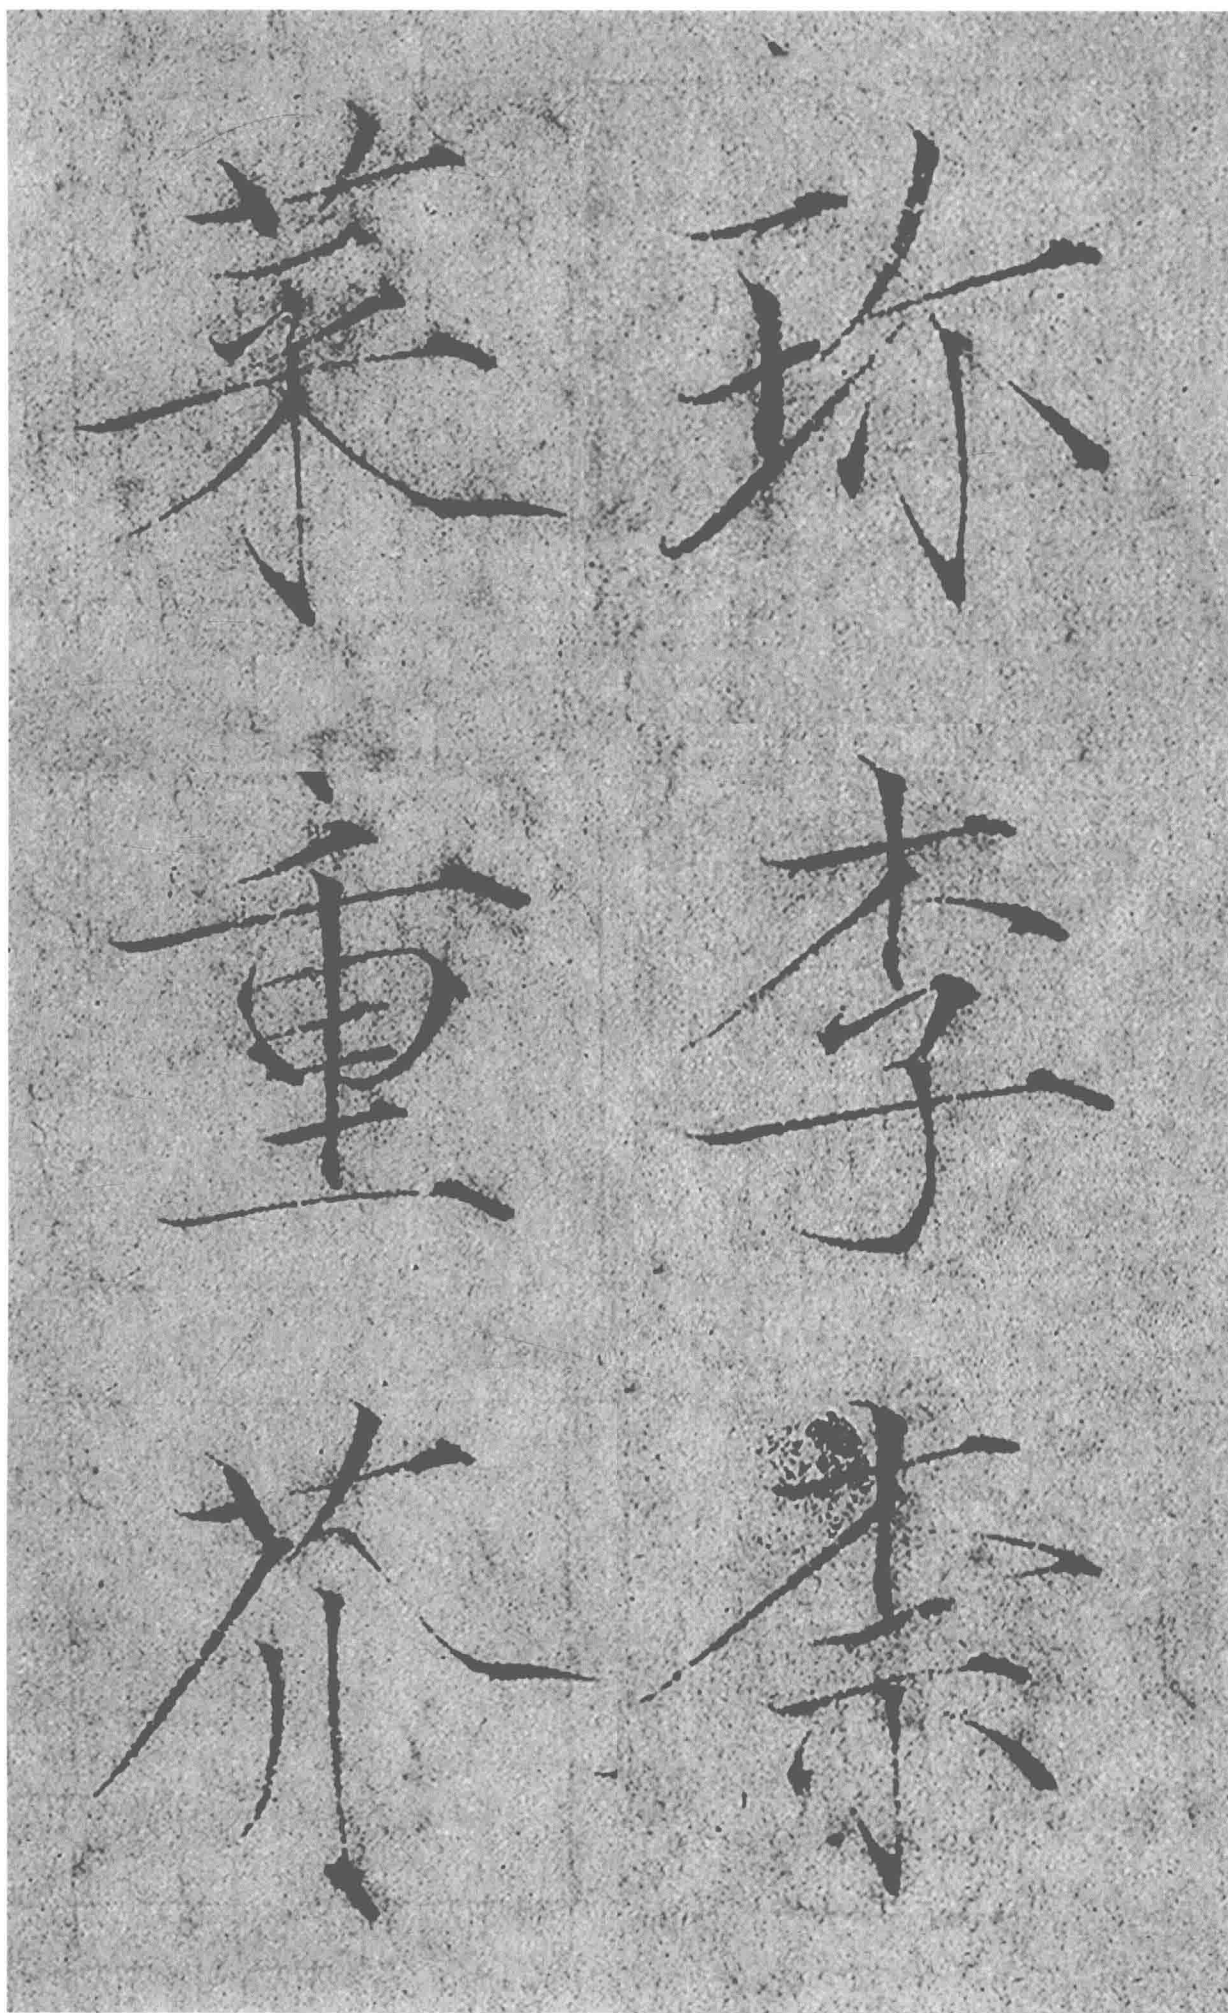 珎李柰
菜重芥